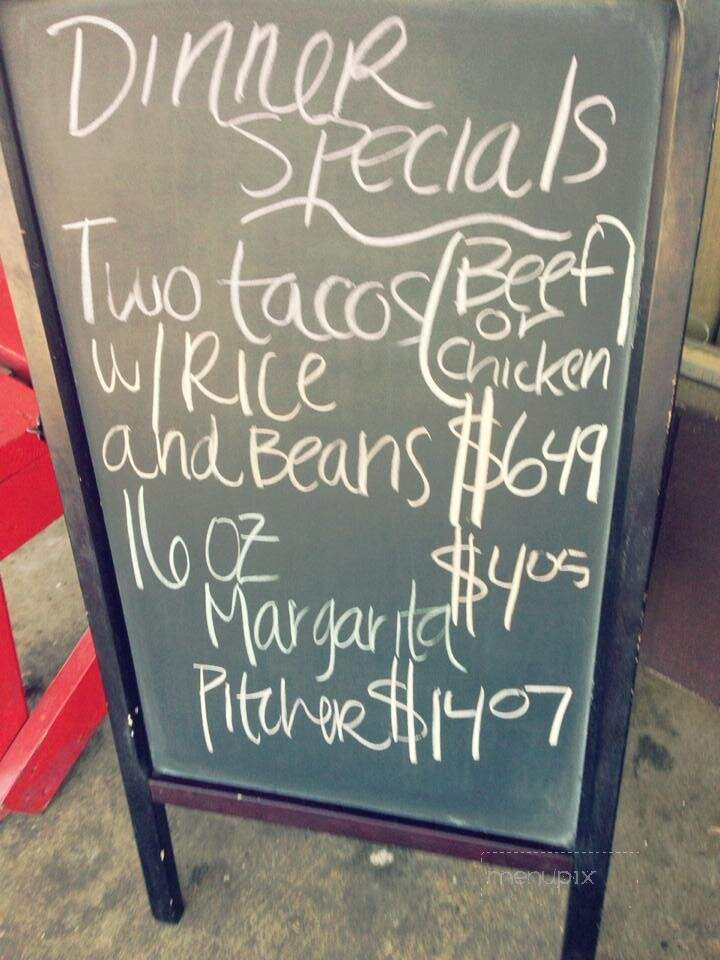 Dinner
Specials
Two tacos (Beef)
or
w/Rice Chicken
and Beans $649
16 oz $405
Margarita
Pitcher $1407
menupix